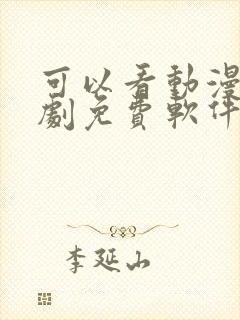 可以看動漫
劇免費軟件
李延山